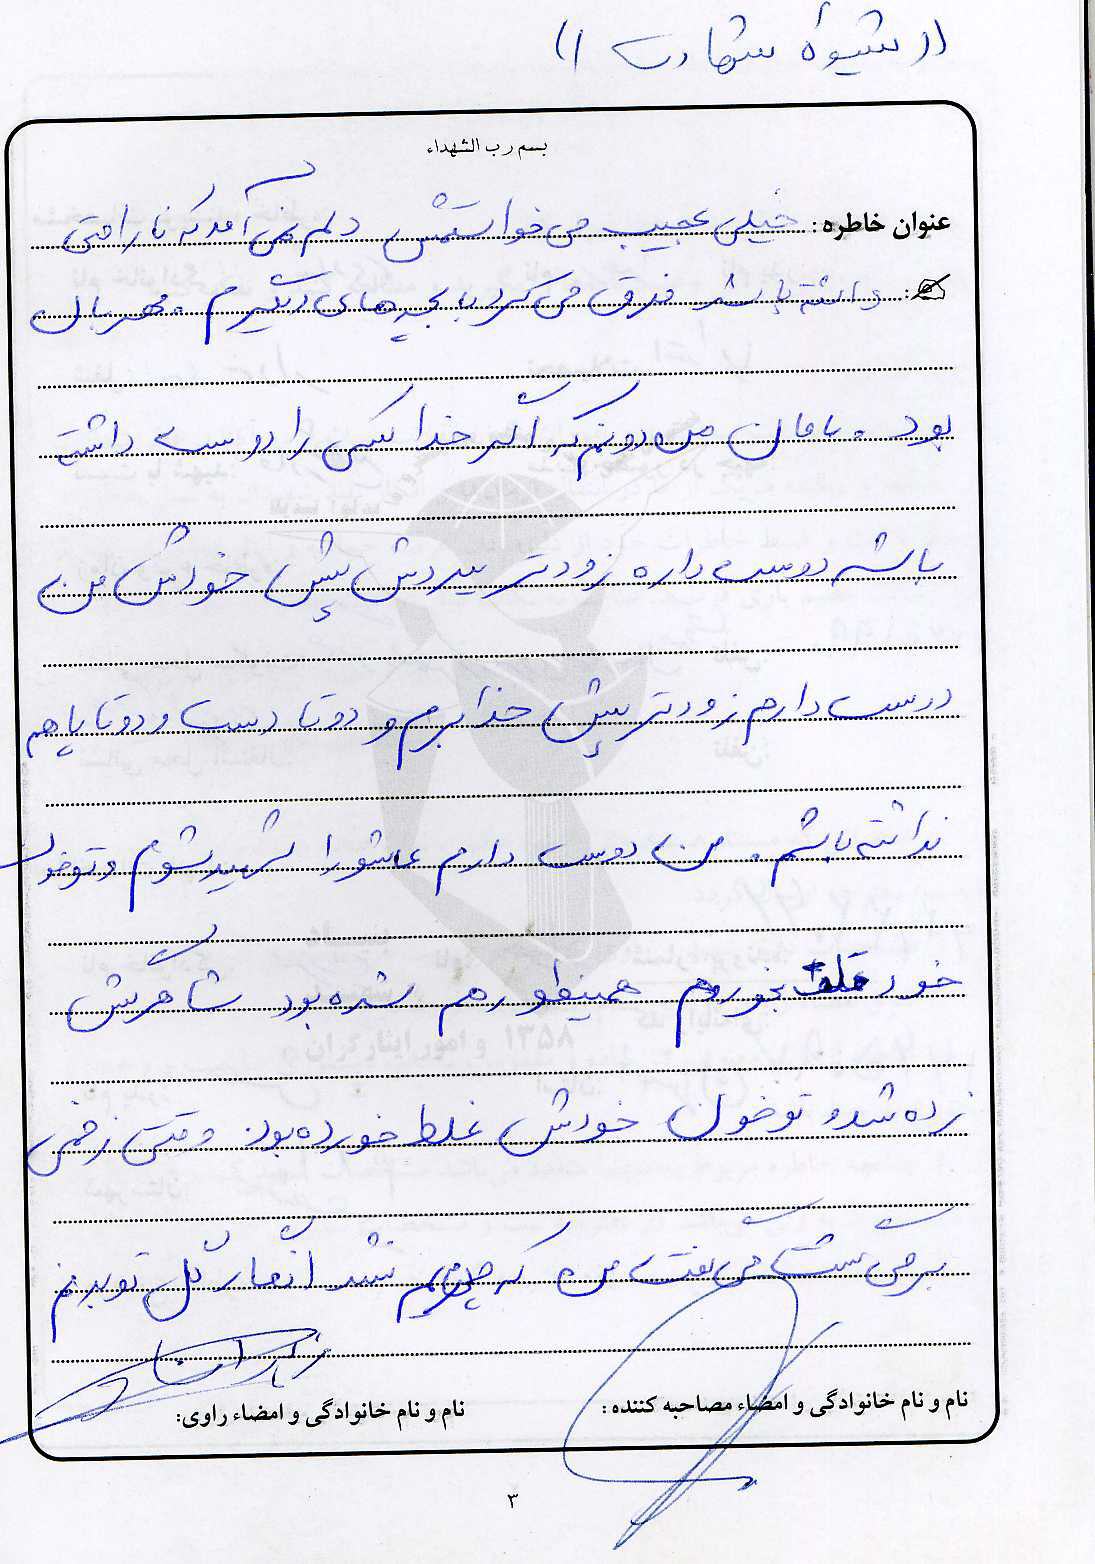 (( شیوه شهادت ۱ ))
بسم رب الشهداء
عنوان خاطره : خیلی عجیب می خواستمش دلم نمی آمد که ناراحتی
داشته باشد فرق می کرد با بچه های دیگرم . مهربان
بود . مامان من می دونم که اگر خدا کسی را دوست داشته
باشه دوست داره زودتر ببردش پیش خودش من
دوست دارم زودتر پیش خدا برم و دوتا دست و دوتا پا هم
نداشته باشم . من دوست دارم عاشورا شهید بشوم و تو خون
خود غلت بخورم همینطور هم شده بود شاهرگش
زده شد و تو خون خودش غلط خورده بود . وقتی زخمی
برمی گشت می گفت من که چیزیم نشد انگار گل تو بدنم
نام و نام خانوادگی و امضاء مصاحبه کننده :
نام و نام خانوادگی و امضاء راوی:
۳